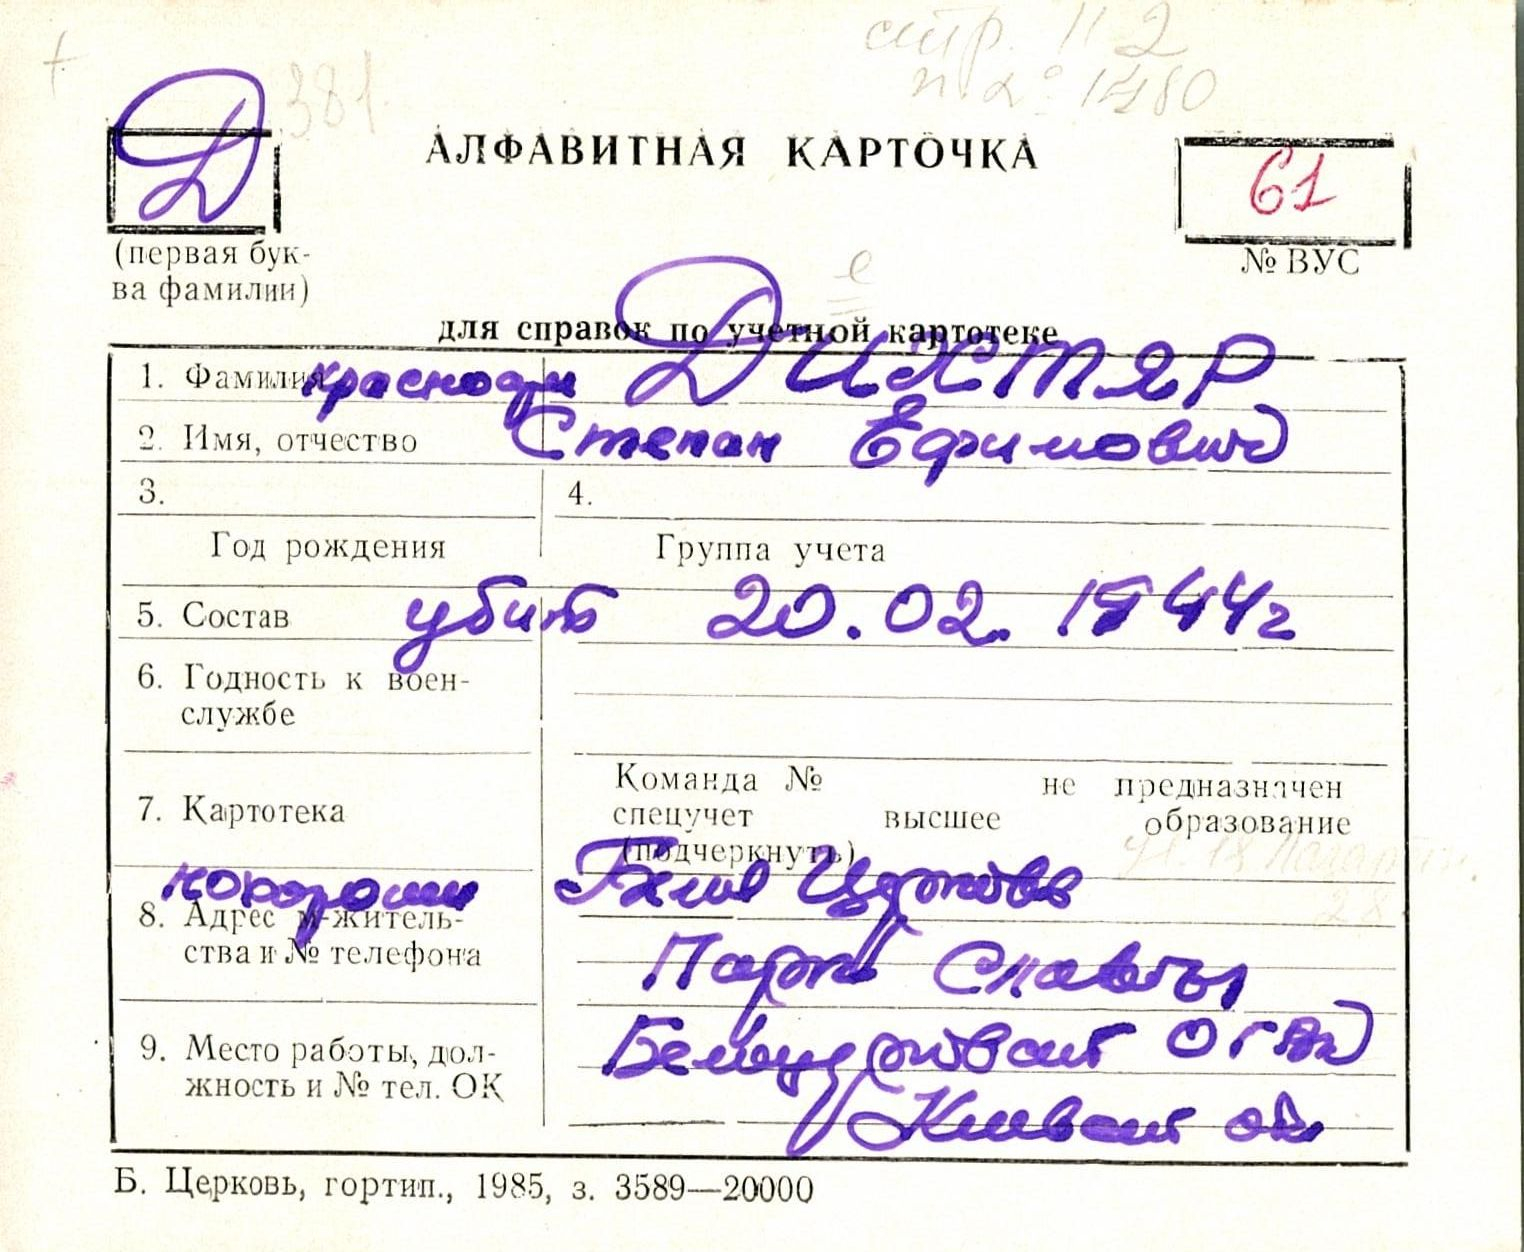 стр. 112
п 2° 1480
381
Д
АЛФАВИТНАЯ КАРТОЧКА
61
(первая бук-
ва фамилии)
№ ВУС
е
для справок по учетной картотеке
1. Фамилия красноарм ДИХТЯР
2. Имя, отчество Степан Ефимович
3. 4.
Год рождения Группа учета
5. Состав убит 20.02.1944г
6. Годность к воен-
службе
Команда № не предназначен
7. Картотека спецучет высшее образование
(подчеркнуть)
похорон Белая Церковь
8. Адрес м-житель-
ства и № телефона
Парк Славы
9. Место работы, дол-
жность и № тел. ОК
Белоцерковский ОГВК
Киевской обл
Б. Церковь, гортип., 1985, з. 3589—20000